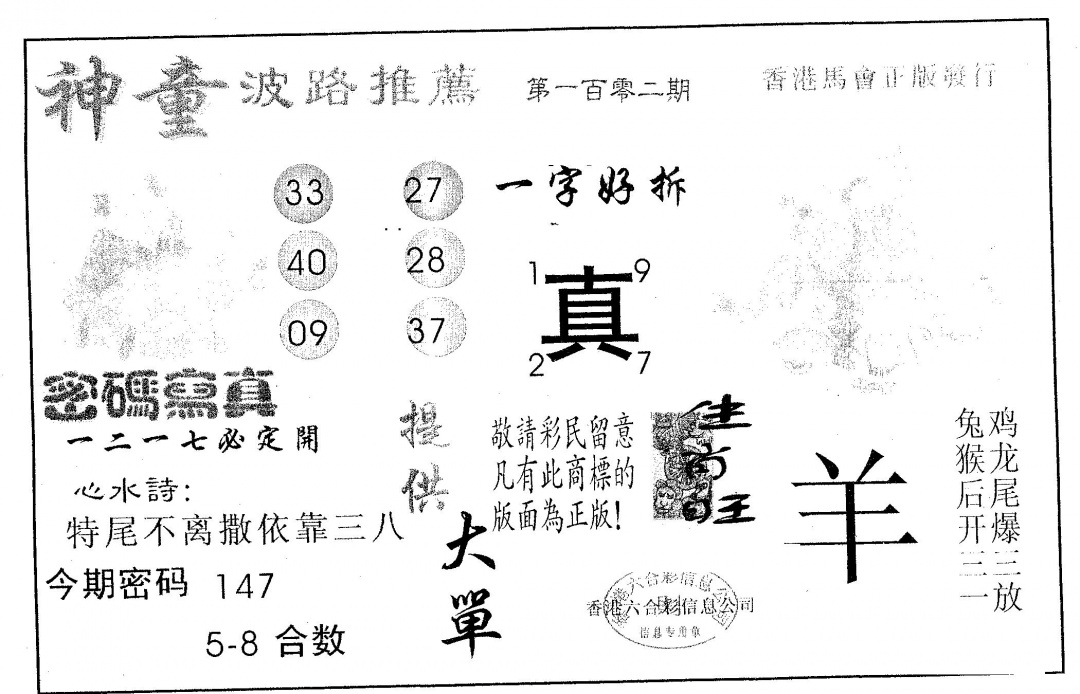 神童波路推薦 第一百零二期 香港馬會正版發行
33 27 一字好拆
40 28
09 37
1 9
真
2 7
密碼寫真
一二一七必定開
心水詩:
特尾不离撒依靠三八
今期密码 147
5-8 合数
提供
大單
敬請彩民留意
凡有此商標的
版面為正版!
羊
鸡龙尾爆三放
兔猴后开三一
香港六合彩信息公司
信息专用章